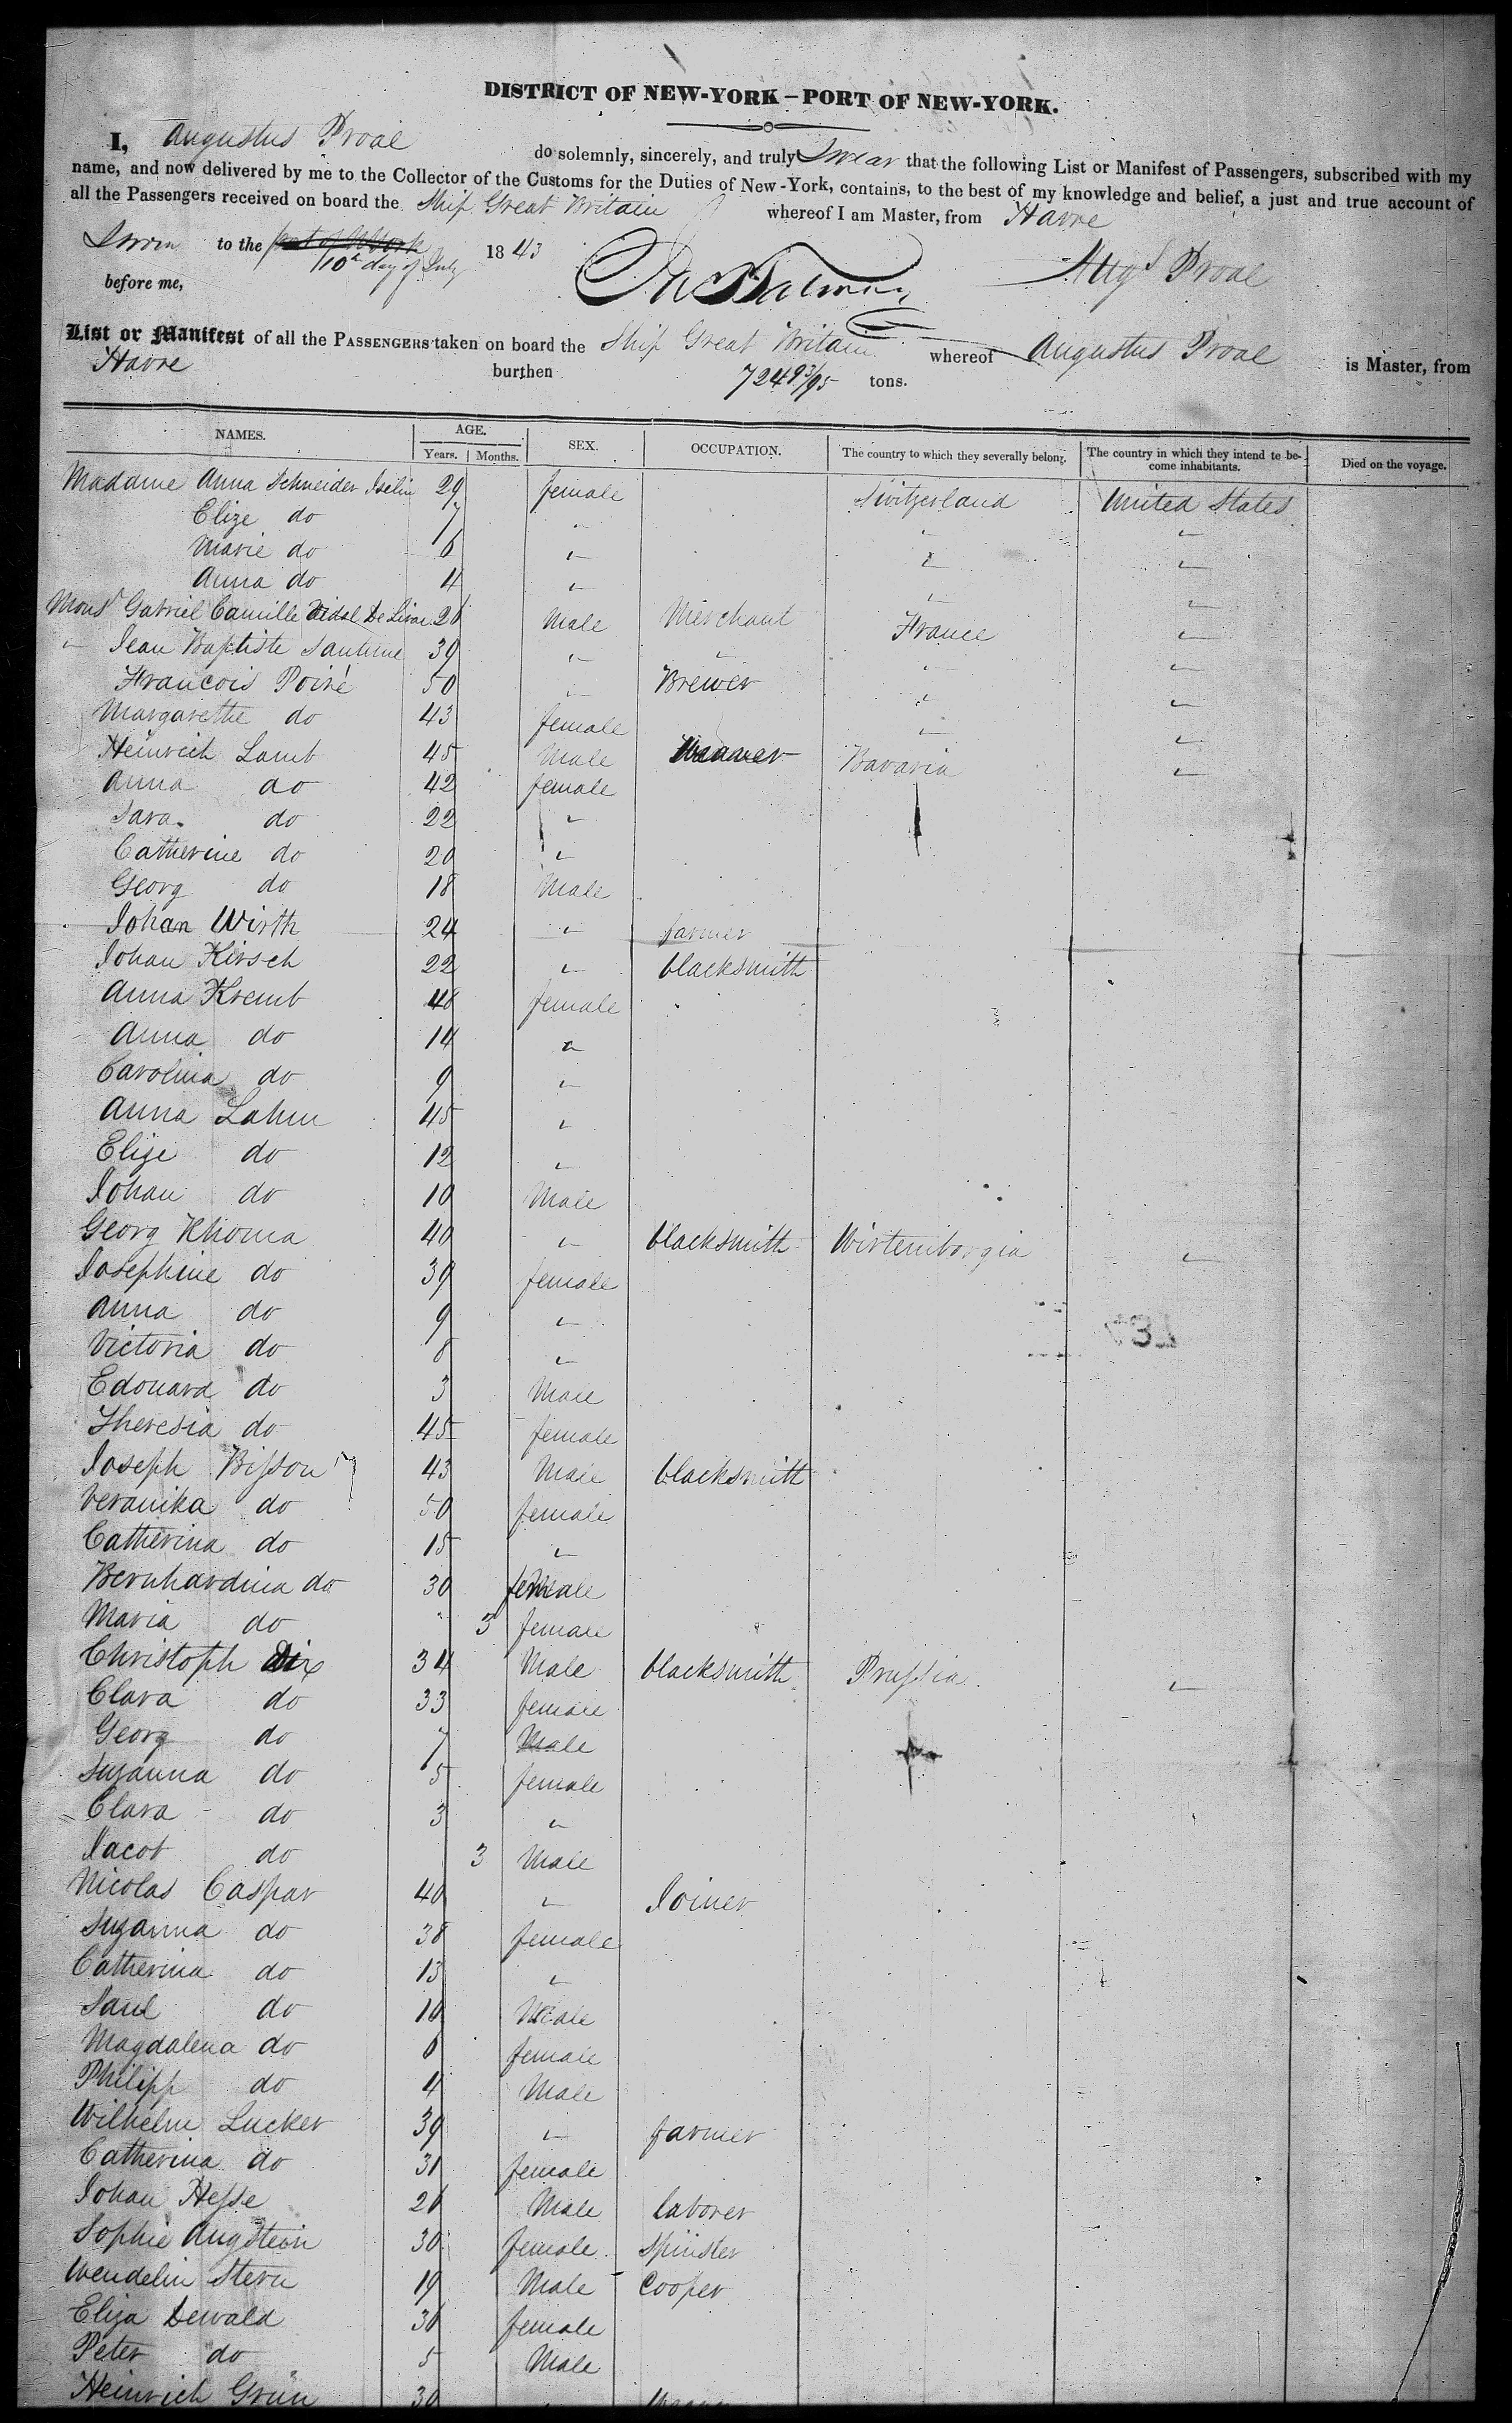 DISTRICT OF NEW-YORK – PORT OF NEW-YORK.
I, Augustus Proal do solemnly, sincerely, and truly Swear that the following List or Manifest of Passengers, subscribed with my
name, and now delivered by me to the Collector of the Customs for the Duties of New-York, contains, to the best of my knowledge and belief, a just and true account of
all the Passengers received on board the Ship Great Britain whereof I am Master, from Havre
Sworn to the port of NYork 10th day of July 1843
before me, Augs Proal
List or Manifest of all the PASSENGERS taken on board the Ship Great Britain whereof Augustus Proal is Master, from
Havre burthen 724 93/95 tons.
NAMES. AGE. Years. Months. SEX. OCCUPATION. The country to which they severally belong. The country in which they intend te become inhabitants. Died on the voyage.
Madame Anna Schneider Iselin 29 female Switzerland United States
Elize do 7 "
Marie do 6 " " "
Anna do 4 " " "
Monsr Gabriel Camille Vidal De 26 Male Merchant France "
" Jean Baptiste 39 " " " "
Francois Poiré 50 " Brewer " "
Margarethe do 43 female " "
Heinrich Lamb 45 Male Weaver Bavaria "
Anna do 42 female
Sara do 22 "
Catherine do 20 "
Georg do 18 Male
Johan Wirth 24 " farmer
Johan Kirsch 22 " blacksmith
Anna Kremb 48 female
Anna do 14 "
Carolina do 9 "
Anna Lahm 45 "
Elize do 12 "
Johan do 10 Male
Georg Khoma 40 " blacksmith Wirtembergia "
Josephine do 39 female
Anna do 9 "
Victoria do 8 "
Edouard do 3 Male
Theresia do 45 female
Joseph Bisson 43 Male blacksmith
Veranika do 50 female
Catherina do 15 "
Bernhardina do 30 female
Maria do " 3 female
Christoph Dix 34 Male blacksmith Prussia "
Clara do 33 female
Georg do 7 Male
Suzanna do 5 female
Clara do 3 "
Jacob do 3 Male
Nicolas Caspar 40 " Joiner
Suzanna do 38 female
Catherina do 13 "
Paul do 10 Male
Magdalena do 6 female
Philipp do 4 Male
Wilhelm Lucker 39 " farmer
Catherina do 31 female
Johan Hesse 26 Male laborer
Sophie Augstein 30 female Spinster
Wendelin Stern 19 Male Cooper
Eliza Dewald 36 female
Peter do 5 Male
Heinrich Grün 30